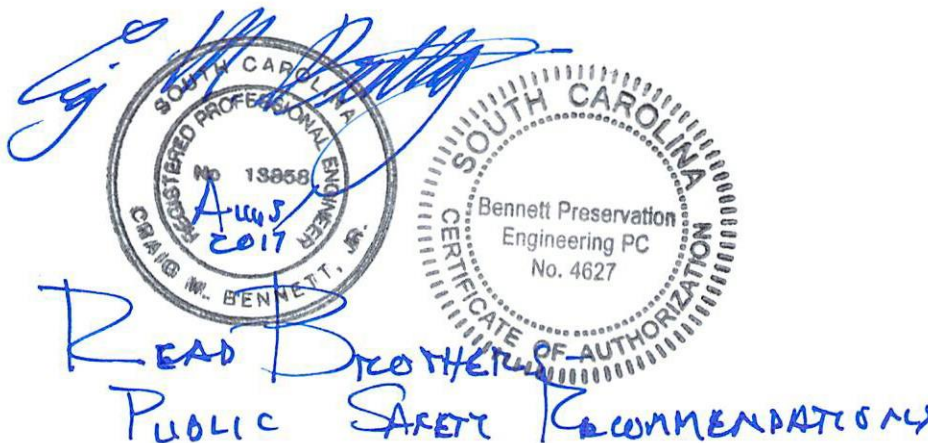 SOUTH CAROLINA
REGISTERED PROFESSIONAL ENGINEER
No 13858
2017
CRAIG M. BENNETT, JR.
SOUTH CAROLINA
Bennett Preservation
Engineering PC
No. 4627
CERTIFICATE OF AUTHORIZATION
READ BROTHERS
PUBLIC SAFETY RECOMMENDATIONS